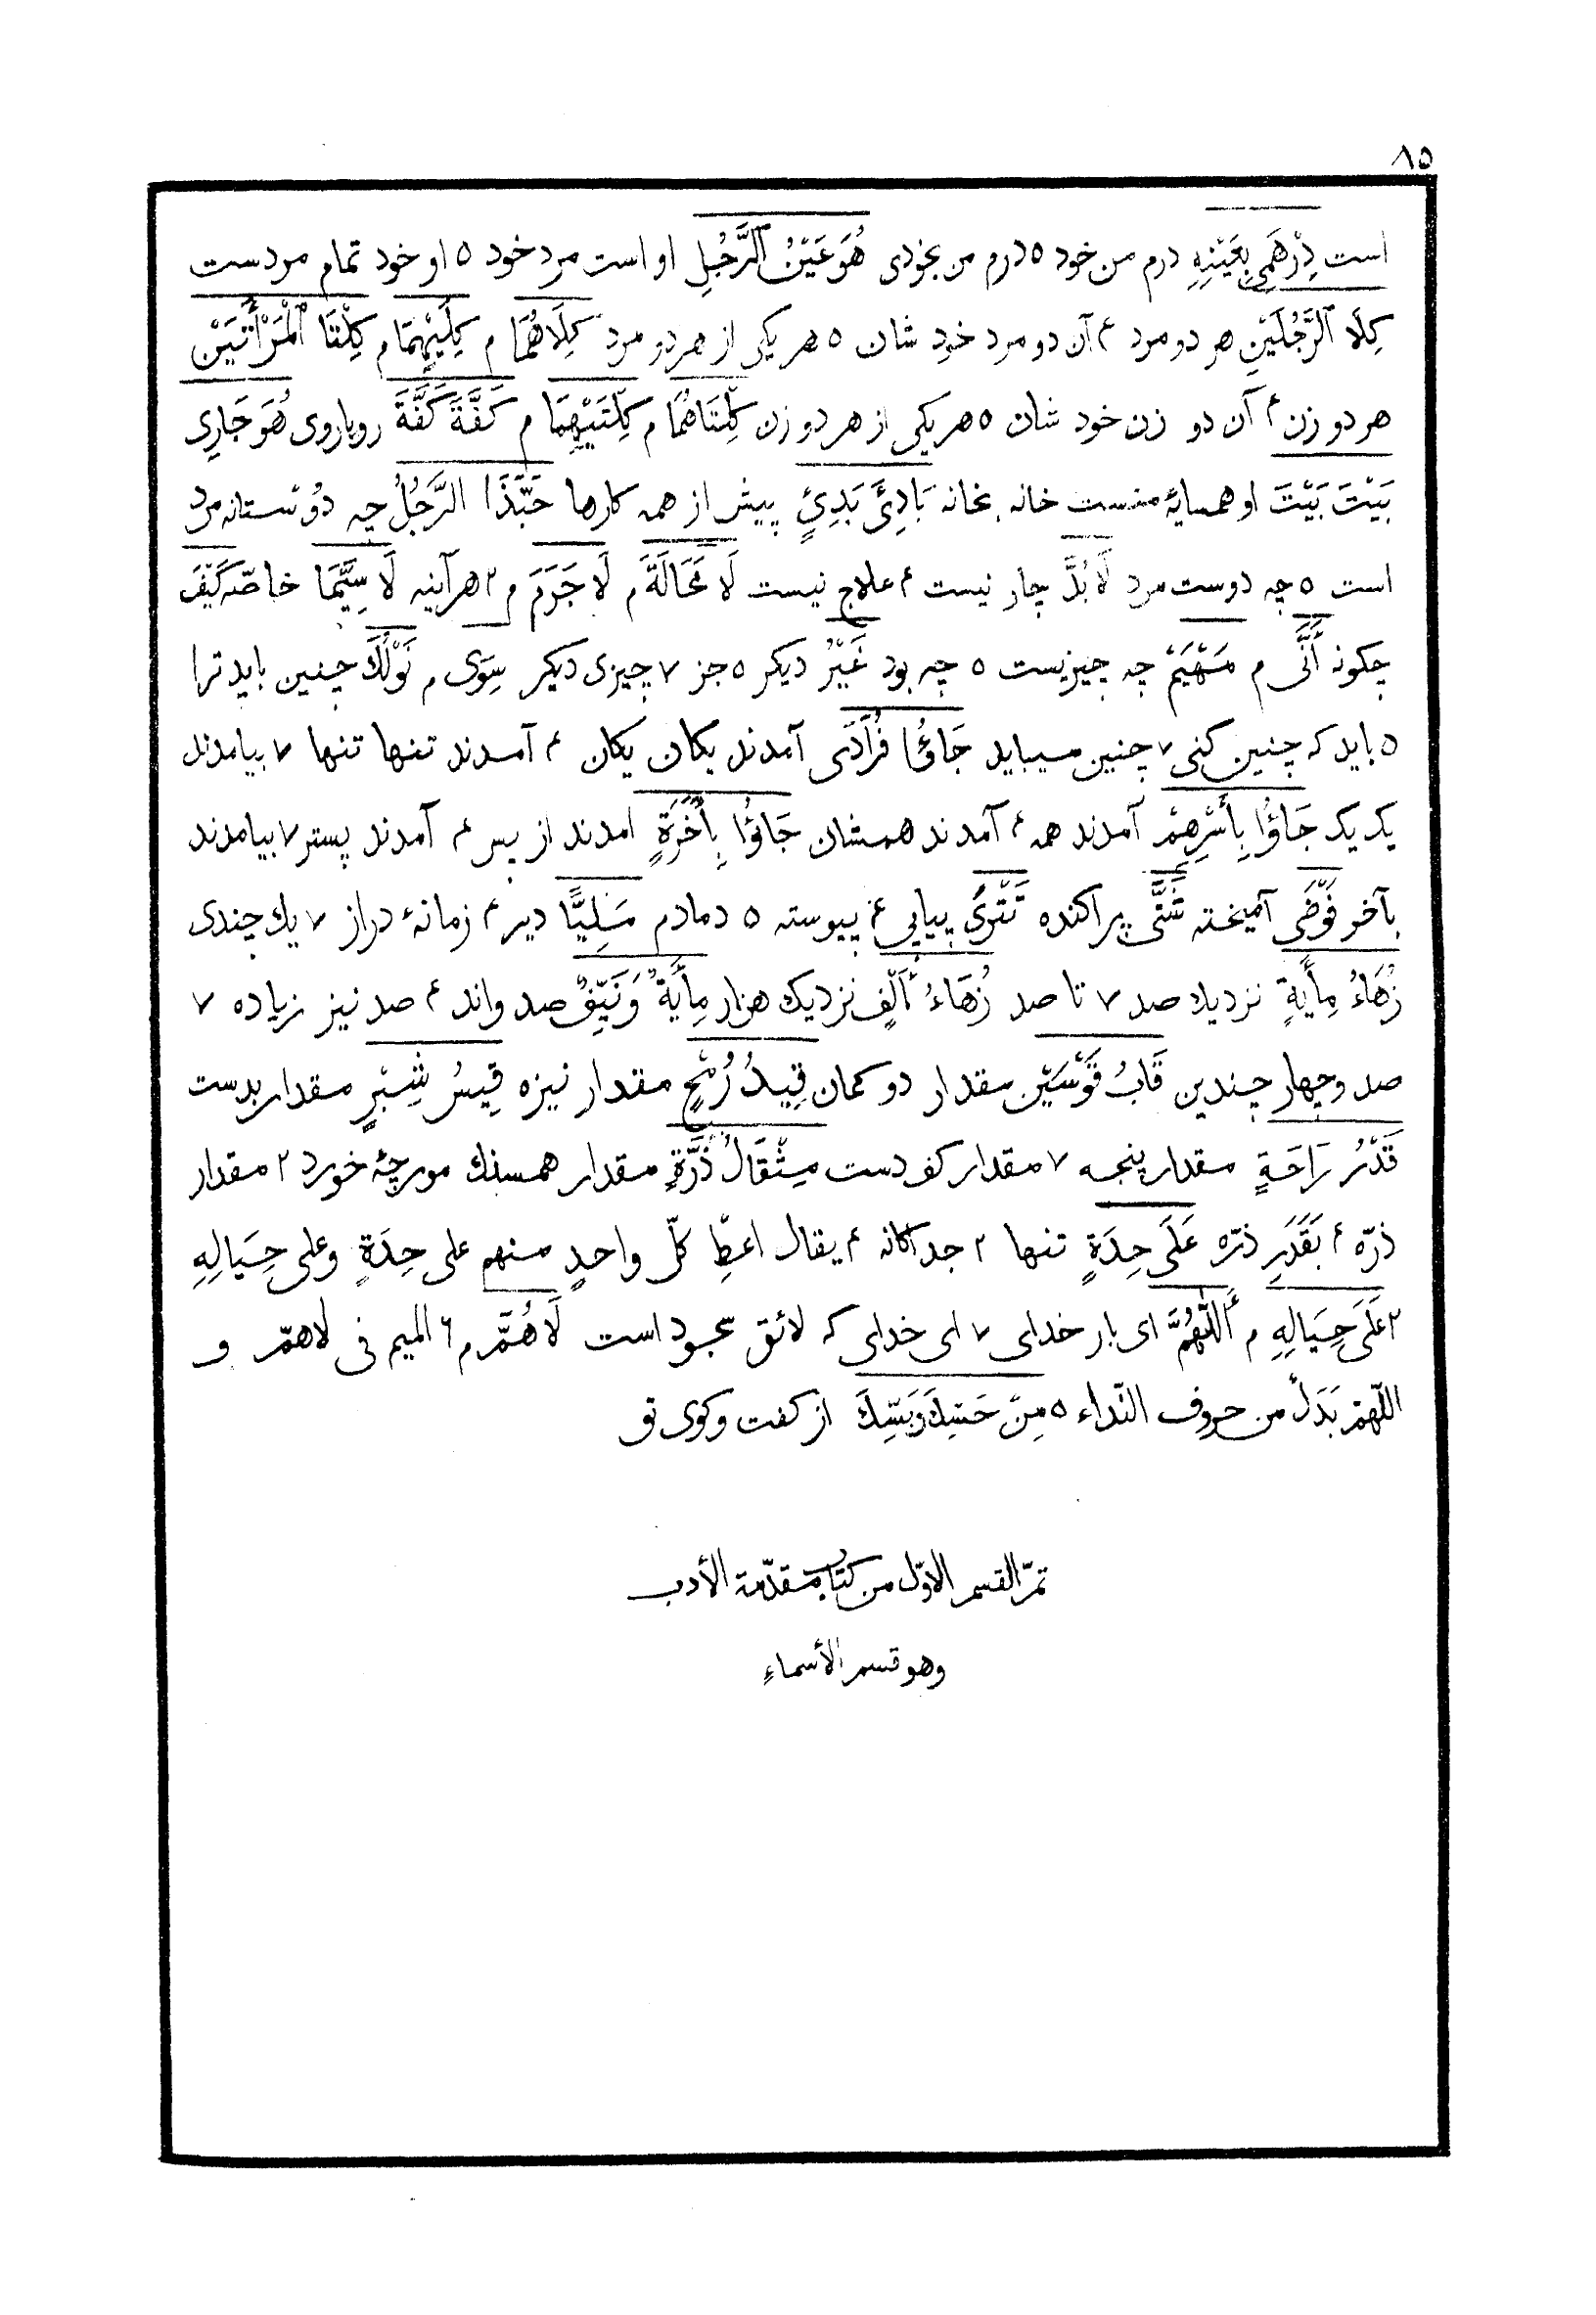 ٨٥
است دِرْهَمِي بِعَيْنِهِ درم من خود ٥ درم من بخودی هُوَ عَيْنُ ٱلرَّجُلِ او است مرد خود ٥ او خود تمام مردست
كِلَا ٱلرَّجُلَيْنِ هر دو مرد ۴ آن دو مرد خود شان ٥ هر یکی از هر دو مرد كِلَاهُمَا م كِلَيْهِمَا م كِلْتَا ٱلْمَرْأَتَيْنِ
هر دو زن ۴ آن دو زن خود شان ٥ هر یکی از هر دو زن كِلْتَاهُمَا م كِلْتَيْهِمَا م كَفَّةَ كَفَّةَ رویاروی هُوَ جَارِي
بَيْتَ بَيْتَ او همسایهٔ منست خانه بخانه بَادِئَ بَدِئٍ پیش از همه کارها حَبَّذَا الرَّجُلُ چه دُوستانه مرد
است ٥ چه دوست مرد لَا بُدَّ چار نیست ۴ علاج نیست لَا مَحَالَةَ م لَا جَرَمَ م ٢ هرآینه لَا سِيَّمَا خاصّه كَيْفَ
چکونه أَنَّى م مَهْيَمْ چه چیزیست ٥ چه بود غَيْرُ دیکر ٥ جز ٧ چیزی دیکر سِوَى م نَوْلُكَ چنین باید ترا
٥ باید که چنین کنی ٧ چنین میباید جَاؤُا فُرَادَى آمدند یکان یکان ۴ آمدند تنها تنها ٧ بیامدند
یک یک جَاؤُا بِأَسْرِهِمْ آمدند همه ۴ آمدند همشان جَاؤُا بِأَخَرَةٍ امدند از پس ۴ آمدند پستر ٧ بیامدند
بآخر فَوْضَى آمیخته شَتَّى پراکنده تَتْرَى پیاپی ۴ پیوسته ٥ دمادم مَلِيًّا دیر ۴ زمانهٔ دراز ٧ یك چندی
زُهَاءُ مِأْيَةٍ نزدیك صد ٧ تا صد زُهَاءُ أَلْفٍ نزدیك هزار مِأْيَةٌ وَنَيِّفٌ صد واند ۴ صد نیز زیاده ٧
صد وچهار چندین قَابُ قَوْسَيْنِ مقدار دو کمان قِيدُ رُمْحٍ مقدار نیزه قِيسُ شِبْرٍ مقدار بدست
قَدْرُ رَاحَةٍ مقدار پنجه ٧ مقدار کف دست مِثْقَالُ ذَرَّةٍ مقدار همسنك مورچهٔ خورد ٢ مقدار
ذرّه ۴ بَقَدَرِ ذرّه عَلَى حِدَةٍ تنها ٢ جداکانه ۴ یقال اعطِ كلّ واحدٍ منهم على حِدَةٍ وعلى حِيَالِهِ
٢ عَلَى حِيَالِهِ م أَللّٰهُمَّ ای بار خدای ٧ ای خدای که لائق سجود است لَاهُمَّ م ۶ الميم فى لاهمّ و
اللّهمّ بَدَلٌ من حروف النّداء ٥ مِنْ حَسِّكَ وَبَسِّكَ از کفت وکوی تو
تمّ القسم الاوّل من كتاب مقدّمة الأدب
وهو قسم الأسماءِ